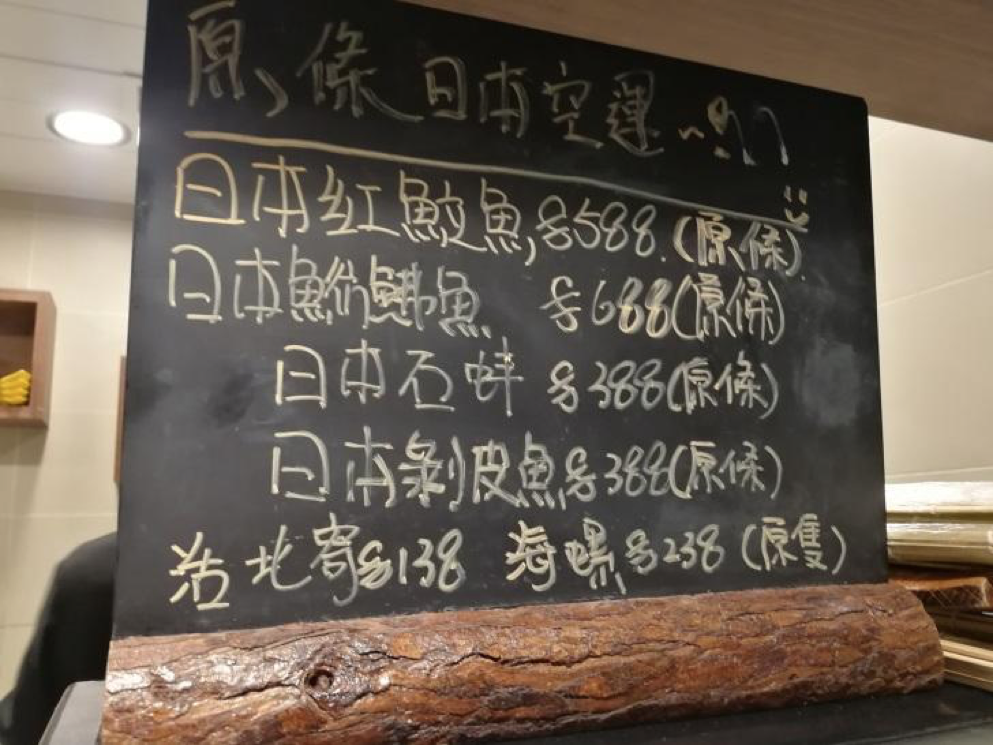 原條日本空運
日本紅鮫魚,$588(原條)
日本魚魚 $688(原條)
日本石蚌 $388(原條)
日本剝皮魚$388(原條)
活北寄$138 海螺$238(原隻)